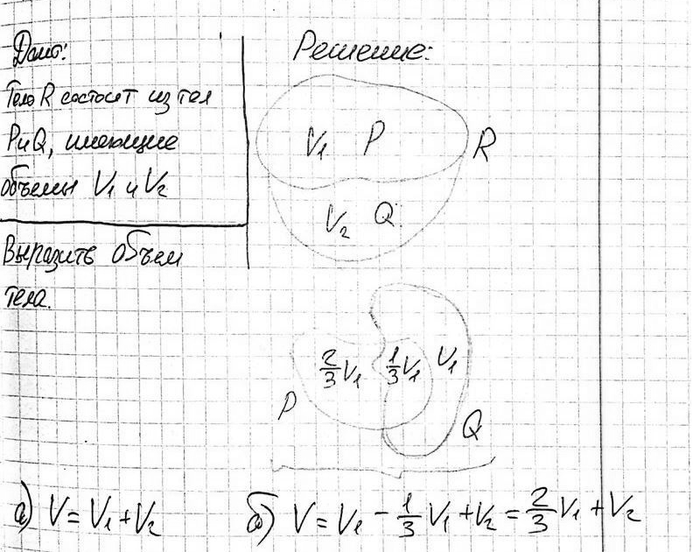 Дано:
Тело R состоит из тел
P и Q, имеющие
объемы V₁ и V₂
Выразить объем
тела.
Решение:
V₁ P R
V₂ Q
2/3 V₁ 1/3 V₁ V₁
P Q
а) V = V₁ + V₂
б) V = V₁ - 1/3 V₁ + V₂ = 2/3 V₁ + V₂